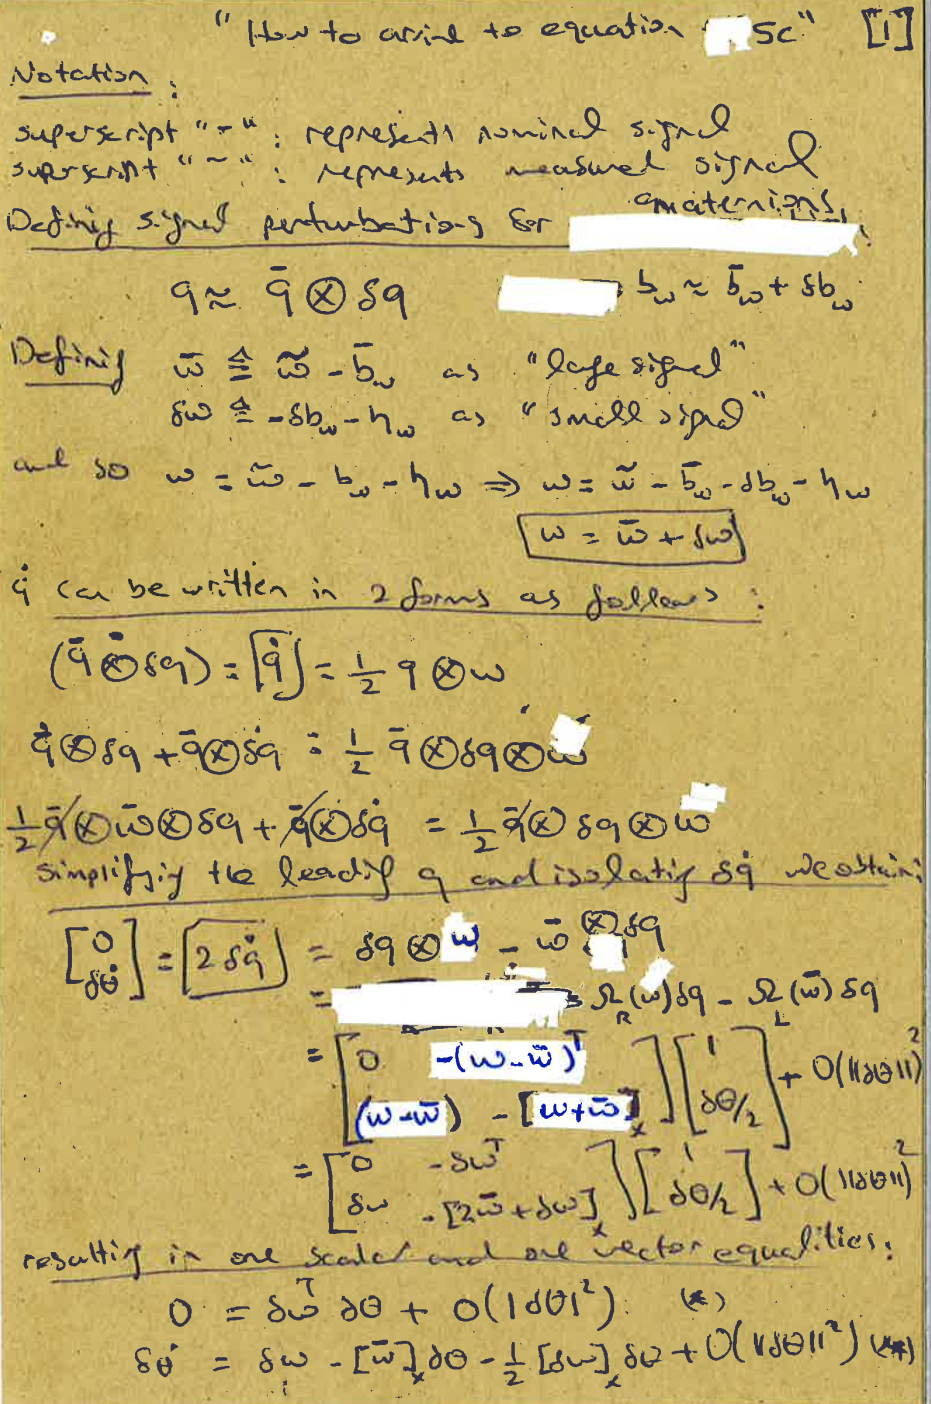 "How to arrive to equation 5c" [1]
Notation :
superscript "-" : represents nominal signal
superscript "~" : represents measured signal
Defining signal perturbations for quaternions,
q ≈ q̄ ⊗ δq , b_ω ≈ b̄_ω + δb_ω
Defining ω̄ ≜ ω̃ - b̄_ω as "large signal"
δω ≜ -δb_ω - η_ω as "small signal"
and so ω = ω̃ - b_ω - η_ω ⇒ ω = ω̃ - b̄_ω - δb_ω - η_ω
ω = ω̄ + δω
q̇ can be written in 2 forms as follows :
(q̄ ⊗̇ δq) = [q̇] = 1/2 q ⊗ ω
q̄̇ ⊗ δq + q̄ ⊗ δq̇ = 1/2 q̄ ⊗ δq ⊗ ω
1/2 q̄ ⊗ ω̄ ⊗ δq + q̄ ⊗ δq̇ = 1/2 q̄ ⊗ δq ⊗ ω
simplifying the leading q and isolating δq̇ we obtain:
[0 ; δθ̇] = [2 δq̇] = δq ⊗ ω - ω̄ ⊗ δq
= Ω_R(ω) δq - Ω_L(ω̄) δq
= [0 -(ω-ω̄)^T ; (ω-ω̄) -[ω+ω̄]_x] [1 ; δθ/2] + O(||δθ||²)
= [0 -δω^T ; δω -[2ω̄+δω]_x] [1 ; δθ/2] + O(||δθ||²)
resulting in one scalar and one vector equalities:
0 = δω^T δθ + O(|δθ|²) (*)
δθ̇ = δω - [ω̄]_x δθ - 1/2 [δω]_x δθ + O(||δθ||²) (**)